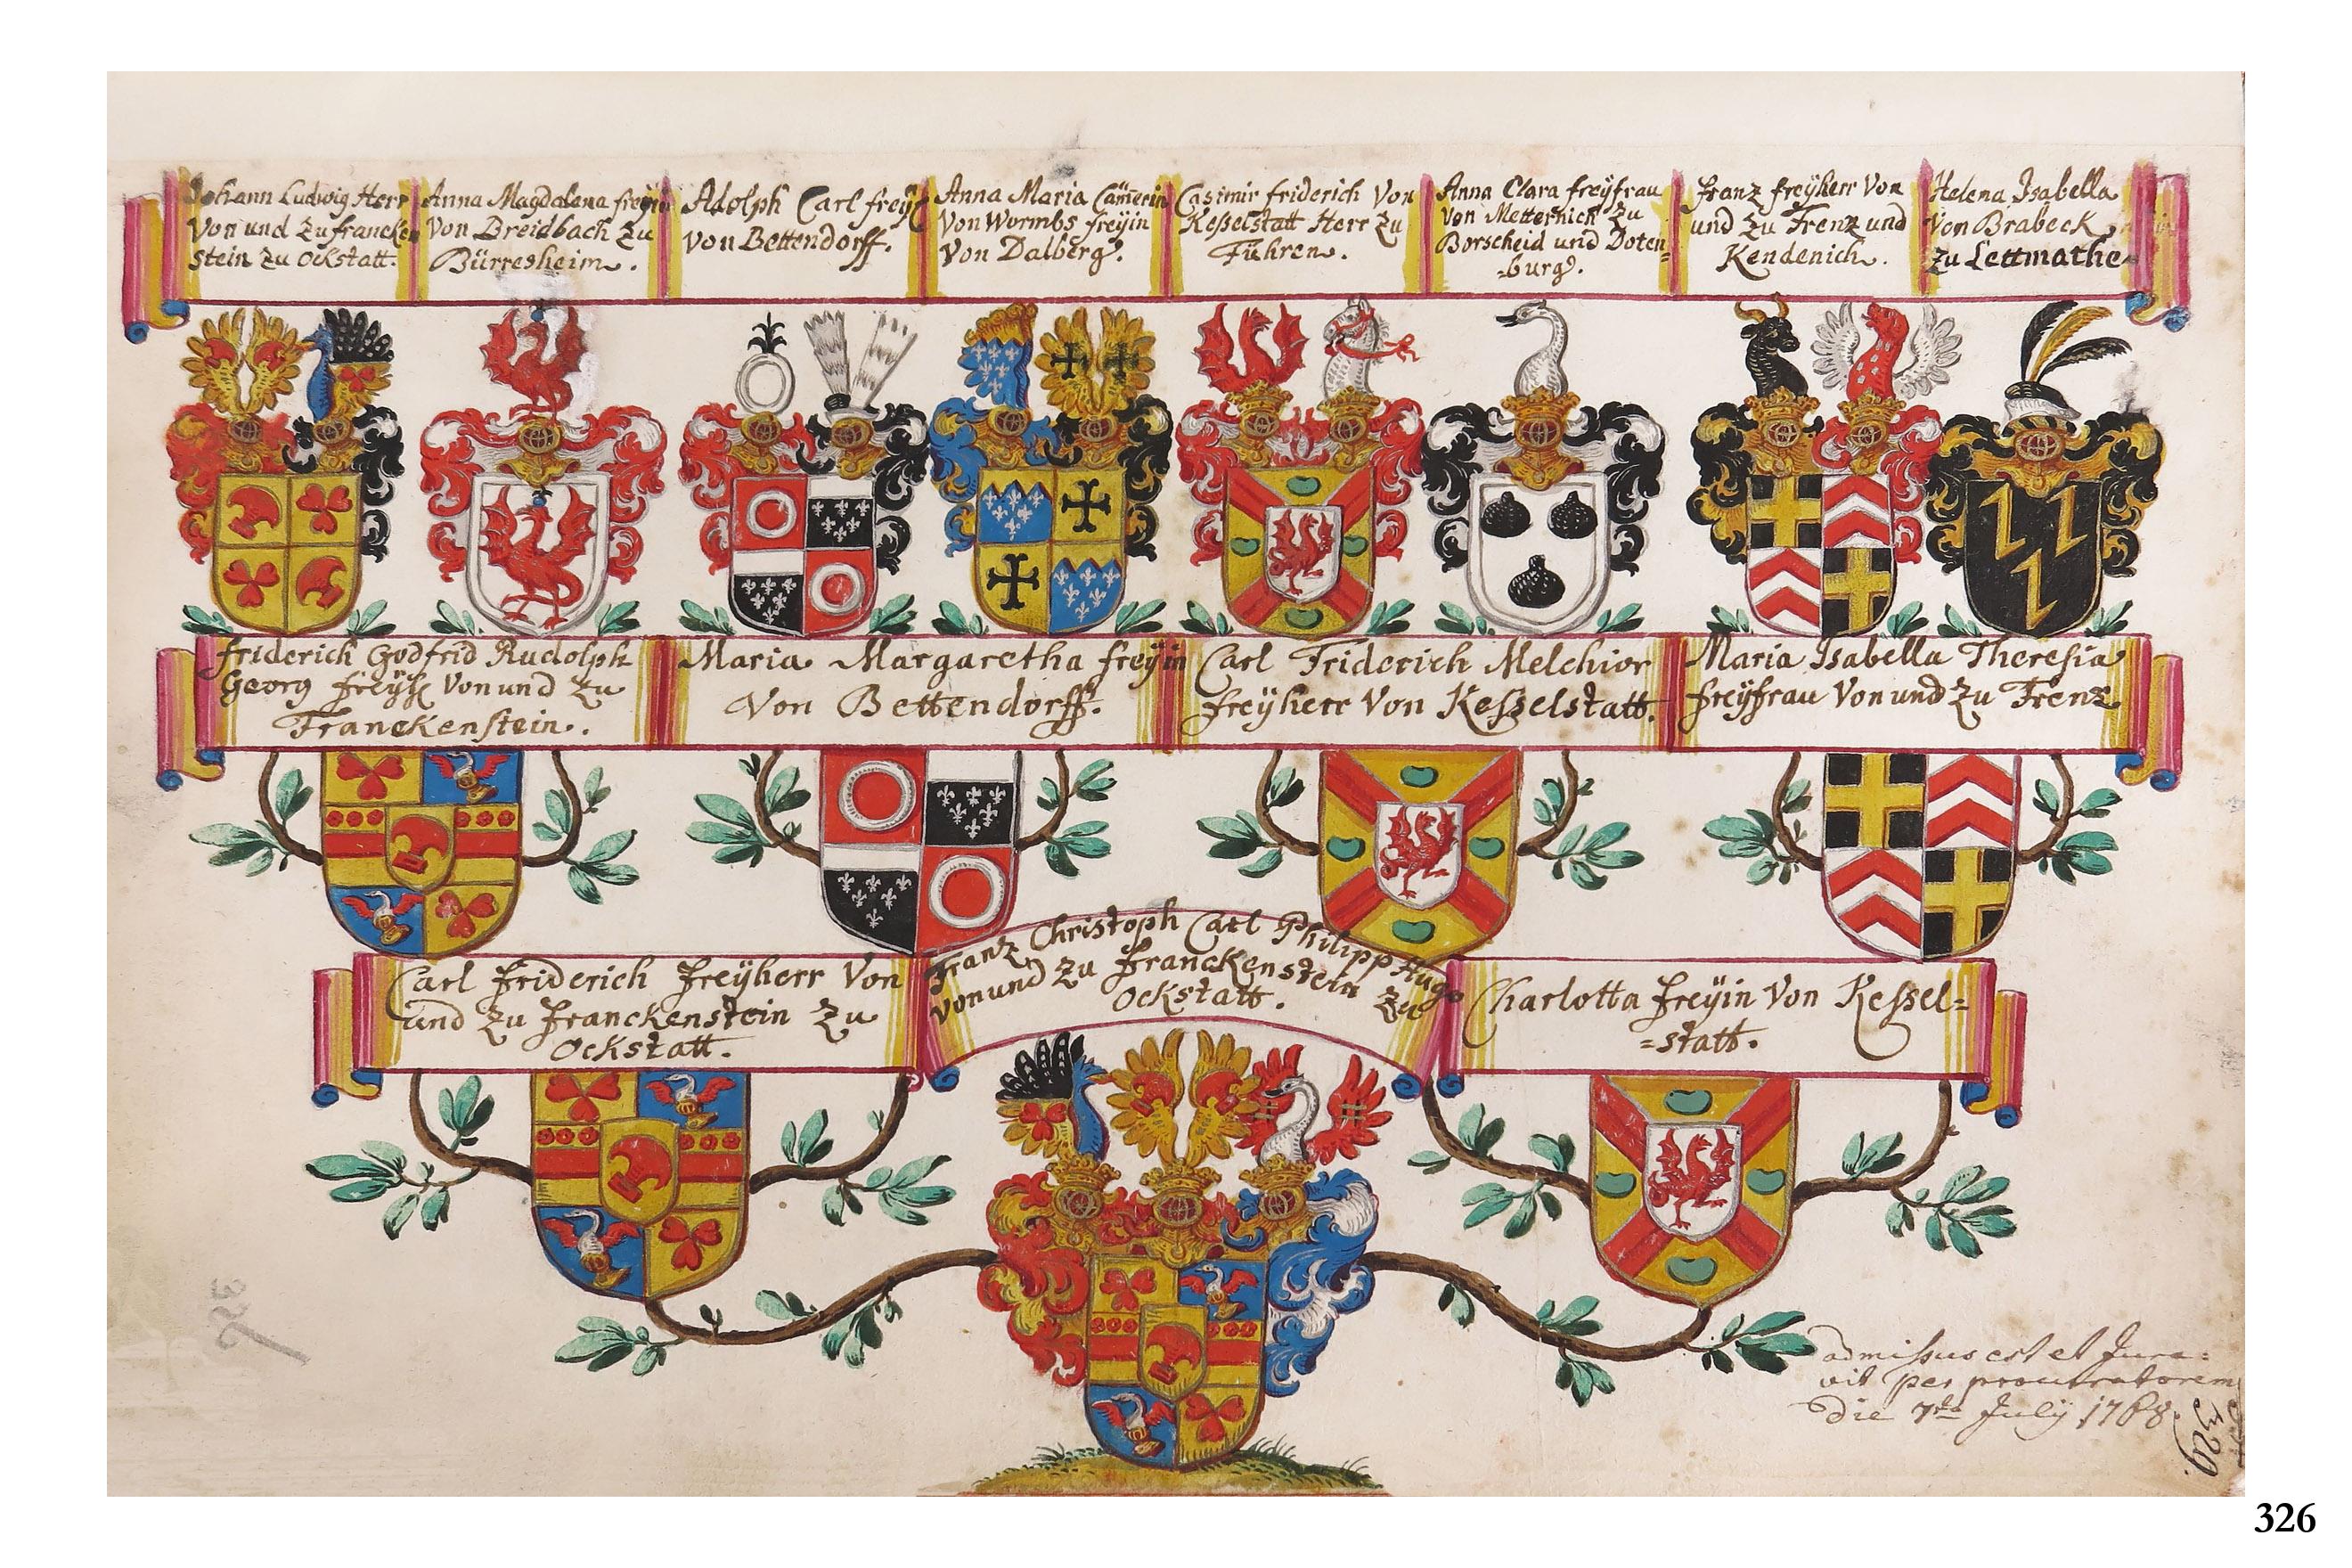 Johann Ludwig Herr
Von und Zu francken
stein Zu Ockstatt.
Anna Magdalena freyin
Von Breidbach Zu
Bürresheim.
Adolph Carl freyh
von Bettendorff.
Anna Maria Cam̄erin
Von Wormbs freyin
Von Dalberg.
Casimir friderich Von
Kesselstatt Herr Zu
Führen.
Anna Clara freÿfrau
Von Metternich Zu
Borscheid und Doten=
=burg.
franz freÿherr Von
und Zu Frenz und
Kendenich.
Helena Isabella
Von Brabeck
Zu Lettmathe
friderich Godfrid Rudolph
Georg freÿh Von und Zu
Franckenstein.
Maria Margaretha freÿin
Von Bettendorff.
Carl Friderich Melchior
freÿherr Von Kesselstatt.
Maria Isabella Theresia
freÿfrau Von und Zu Frenz
Carl friderich freÿherr Von
und Zu franckenstein Zu
Ockstatt.
Franz Christoph Carl Philipp Hugo
von und Zu franckenstein Zu
Ockstatt.
Charlotta freÿin Von Kessel=
=statt.
admissus est et Jura=
vit per procuratorem
Die 7ta Julÿ 1768
329.
326
326